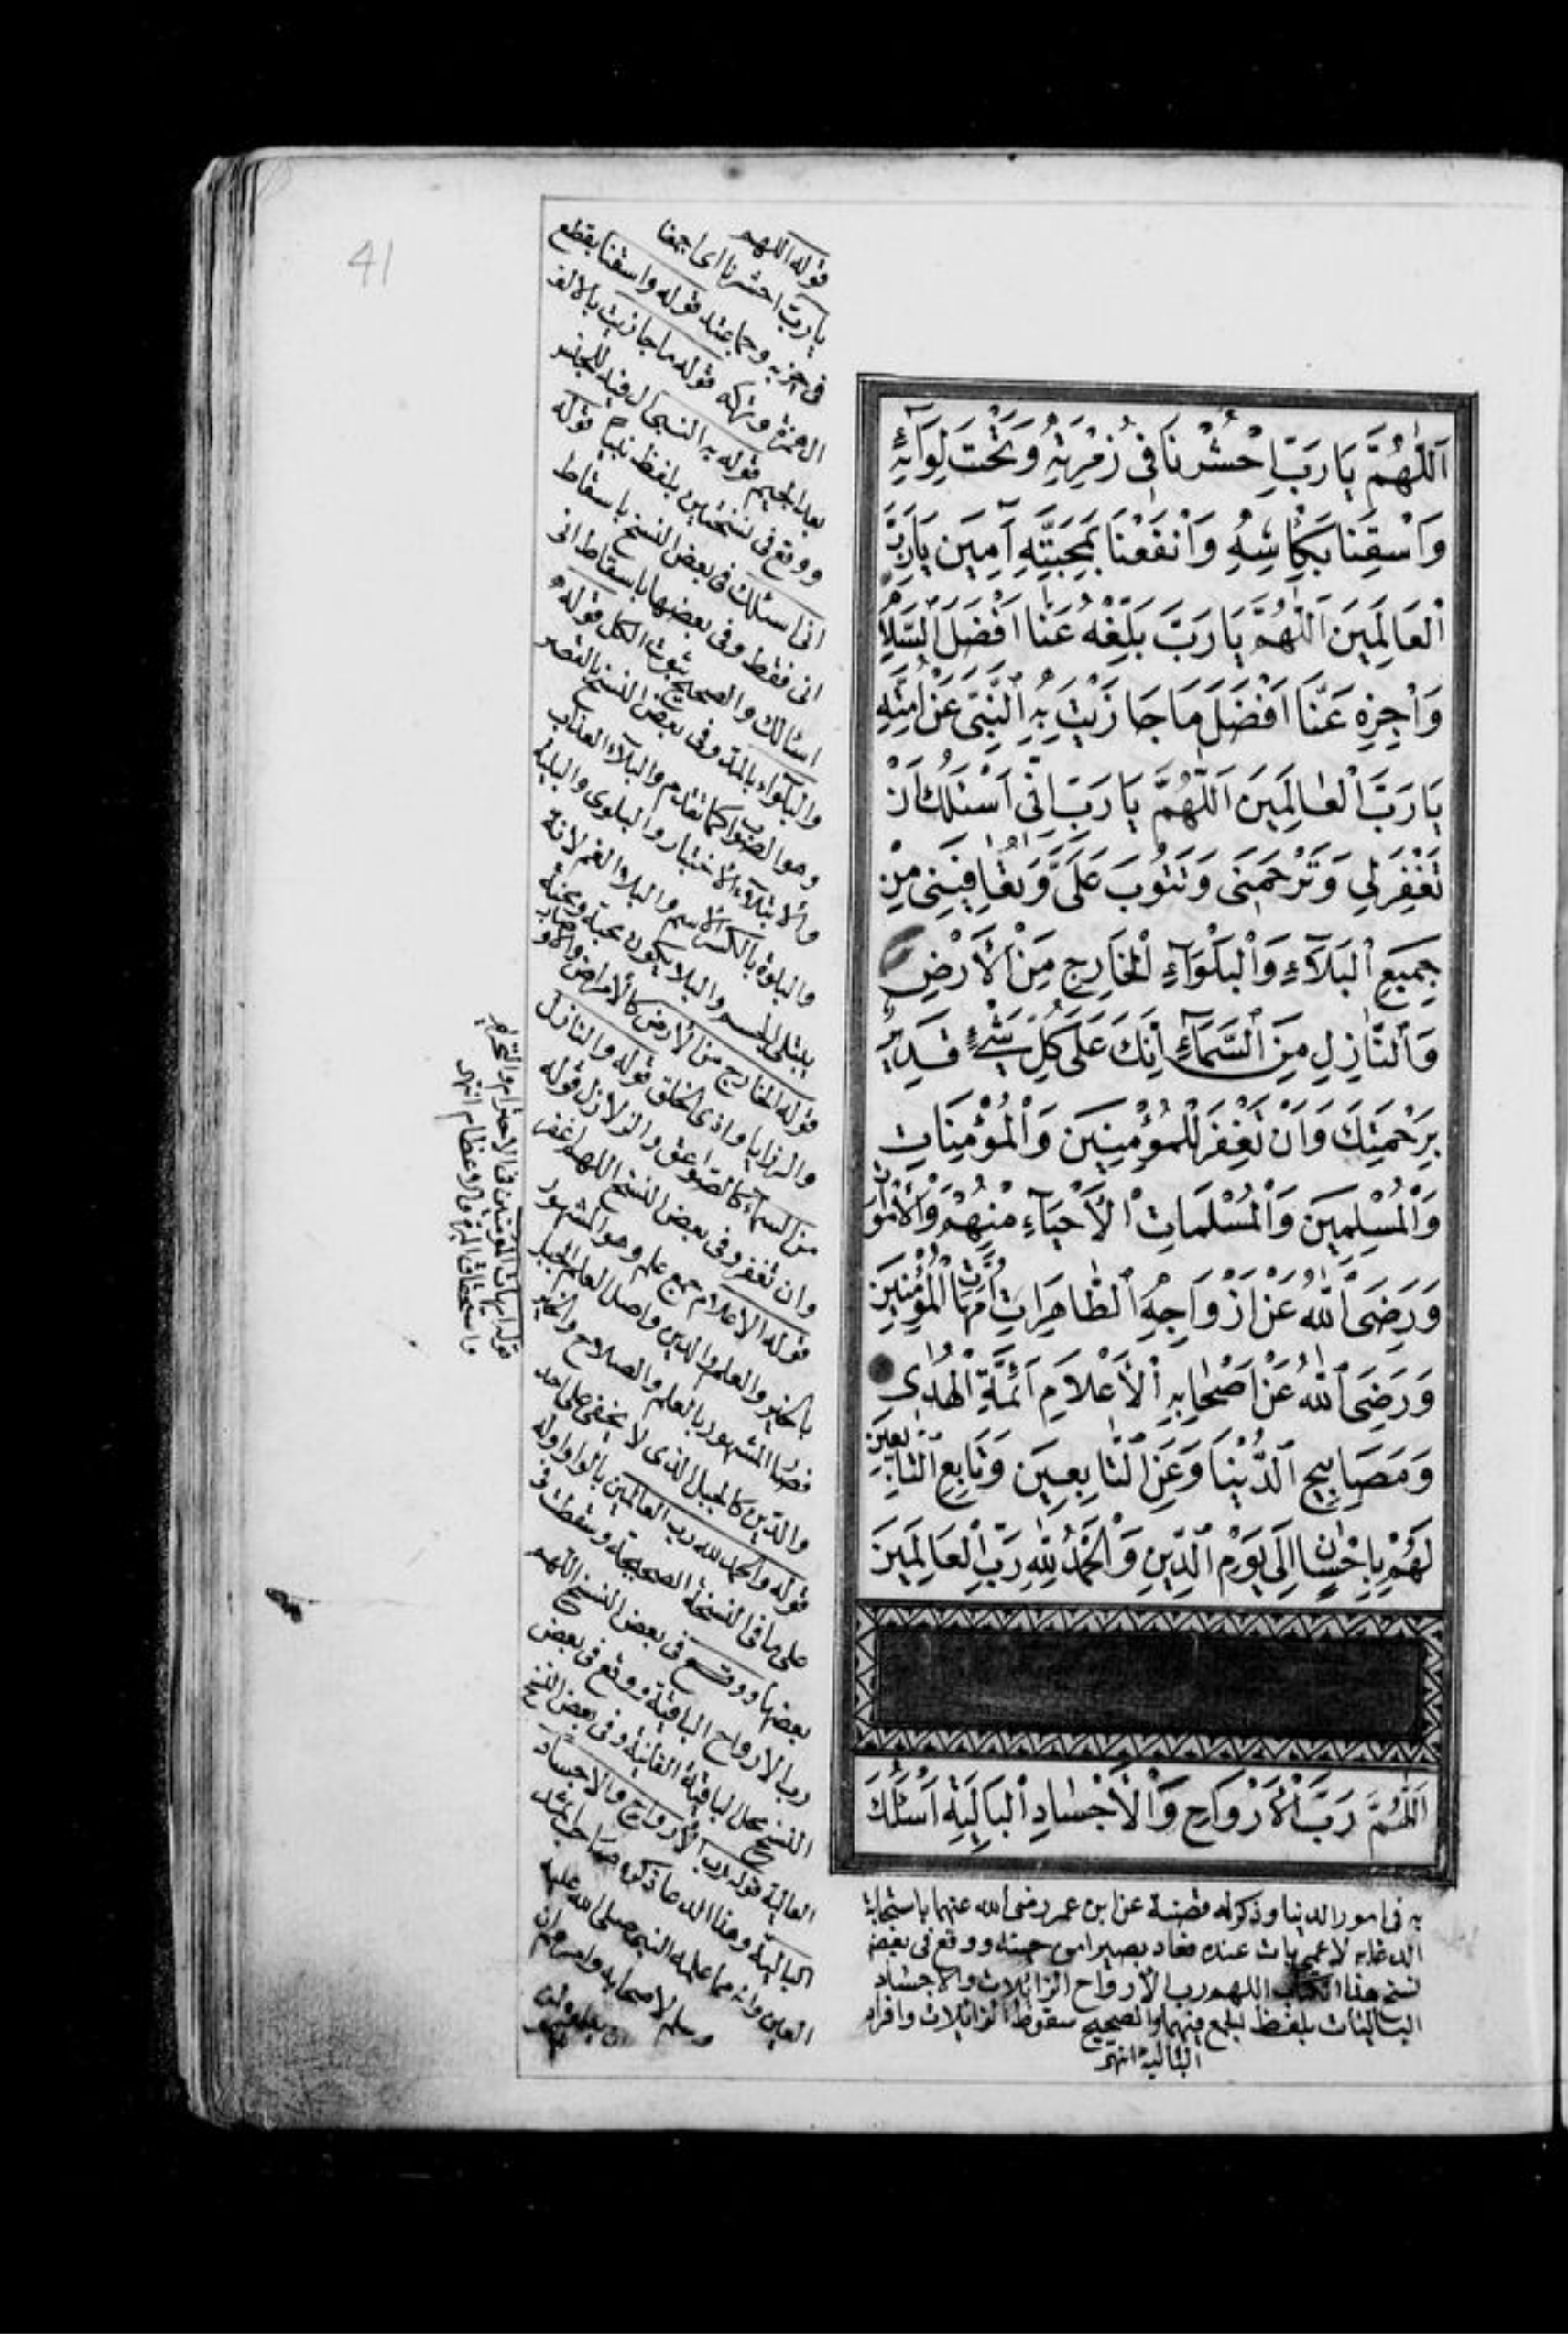 41
اَللّٰهُمَّ يَا رَبِّ احْشُرْنَا فِي زُمْرَتِهِ وَتَحْتَ لِوَآئِهِ
وَاسْقِنَا بِكَاْسِهِ وَانْفَعْنَا بِمَحَبَّتِهِ آمِينَ يَا رَبَّ
الْعَالَمِينَ اَللّٰهُمَّ يَا رَبِّ بَلِّغْهُ عَنَّا اَفْضَلَ السَّلَامِ
وَاجْزِهِ عَنَّا اَفْضَلَ مَا جَازَيْتَ بِهِ النَّبِيَّ عَنْ اُمَّتِهِ
يَا رَبَّ الْعٰالَمِينَ اَللّٰهُمَّ يَا رَبِّ اِنِّي اَسْئَلُكَ اَنْ
تَغْفِرَ لِي وَتَرْحَمَنِي وَتَتُوبَ عَلَيَّ وَتُعَافِيَنِي مِنْ
جَمِيعِ الْبَلَآءِ وَالْبَلْوَآءِ الْخَارِجِ مِنَ الْأَرْضِ
وَالنَّازِلِ مِنَ السَّمَآءِ اِنَّكَ عَلَى كُلِّ شَيْءٍ قَدِيرٌ
بِرَحْمَتِكَ وَاَنْ تَغْفِرَ لِلْمُؤْمِنِينَ وَالْمُؤْمِنَاتِ
وَالْمُسْلِمِينَ وَالْمُسْلِمَاتِ الْأَحْيَآءِ مِنْهُمْ وَالْأَمْوَاتِ
وَرَضِيَ اللّٰهُ عَنْ اَزْوَاجِهِ الطَّاهِرَاتِ اُمَّهَاتِ الْمُؤْمِنِينَ
وَرَضِيَ اللّٰهُ عَنْ اَصْحَابِهِ الْأَعْلَامِ اَئِمَّةِ الْهُدٰى
وَمَصَابِيحِ الدُّنْيَا وَعَنِ التَّابِعِينَ وَتَابِعِ التَّابِعِينَ
لَهُمْ بِاِحْسَانٍ اِلَى يَوْمِ الدِّينِ وَالْحَمْدُ لِلّٰهِ رَبِّ الْعَالَمِينَ
اَللّٰهُمَّ رَبَّ الْأَرْوَاحِ وَالْأَجْسَادِ الْبَالِيَةِ اَسْئَلُكَ
قوله اللهم
يا رب احشرنا اى اجمعنا
فى حزبه وجماعته قوله واسقنا بقطع
الهمزة وتركه قوله ما جازيت بالالف
بعد الجيم قوله به النبى ال فيه للجنس
ووقع فى نسختين بلفظ نبيا قوله
انى اسئلك فى بعض النسخ باسقاط
انى فقط وفى بعضها باسقاط انى
اسالك والصحيح ثبوت الكل قوله
والبلواء بالمد وفى بعض النسخ بالقصر
وهو الصواب كما تقدم والبلاء العذاب
والابتلاء الاختبار والبلوى والبلية
والبلوة بالكسر الاسم والبلاء الغم لانه
يبتلى الجسم والبلا يكون محبة ومحنة
قوله الخارج من الارض كالامراض والاوصاب
والرزايا واذى الخلق قوله والنازل
من السماء كالصواعق والزلازل قوله
وان تغفر وفى بعض النسخ اللهم اغفر
قوله الاعلام جمع علم وهو المشهور
بالخير والعلم والدين واصل العلم الجبل
فصار المشهور بالعلم والصلاح والخير
والدين كالجبل الذى لا يخفى على احد
قوله والحمد لله رب العالمين بالواو اوله
على ما فى النسخة الصحيحة وسقطت فى
بعضها ووقع فى بعض النسخ اللهم
رب الارواح الباقية ووقع فى بعض
النسخ محل الباقية الفانية وفى بعض النسخ
العالية قوله رب الارواح والاجساد
البالية وهذا الدعا ذكره صاحب
العين وانه مما علمه النبى صلى الله عليه
وسلم لاصحابه وامرهم ان
به فى امور الدنيا وذكر له قصة عن ابن عمر رضى الله عنهما باستجابة
الدعا به لاعمى بات عنده فعاد بصيرا من حينه ووقع فى بعض
نسخ هذا الكتاب اللهم رب الارواح الزائلات والاجساد
الباليات بلفظ الجمع فيهما والصحيح سقوط الزائلات وافراد
البالية انتهى
قوله امهات المؤمنين فى الاحترام والتحريم
واستحقاق البر والاعظام انتهى